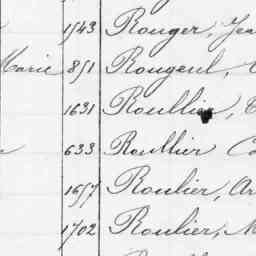 1543 Rouger, Jea
Marie 851 Rougeul,
1631 Roullier,
633 Roullier Co
1657 Roulier, Ar
1702 Roulier, M